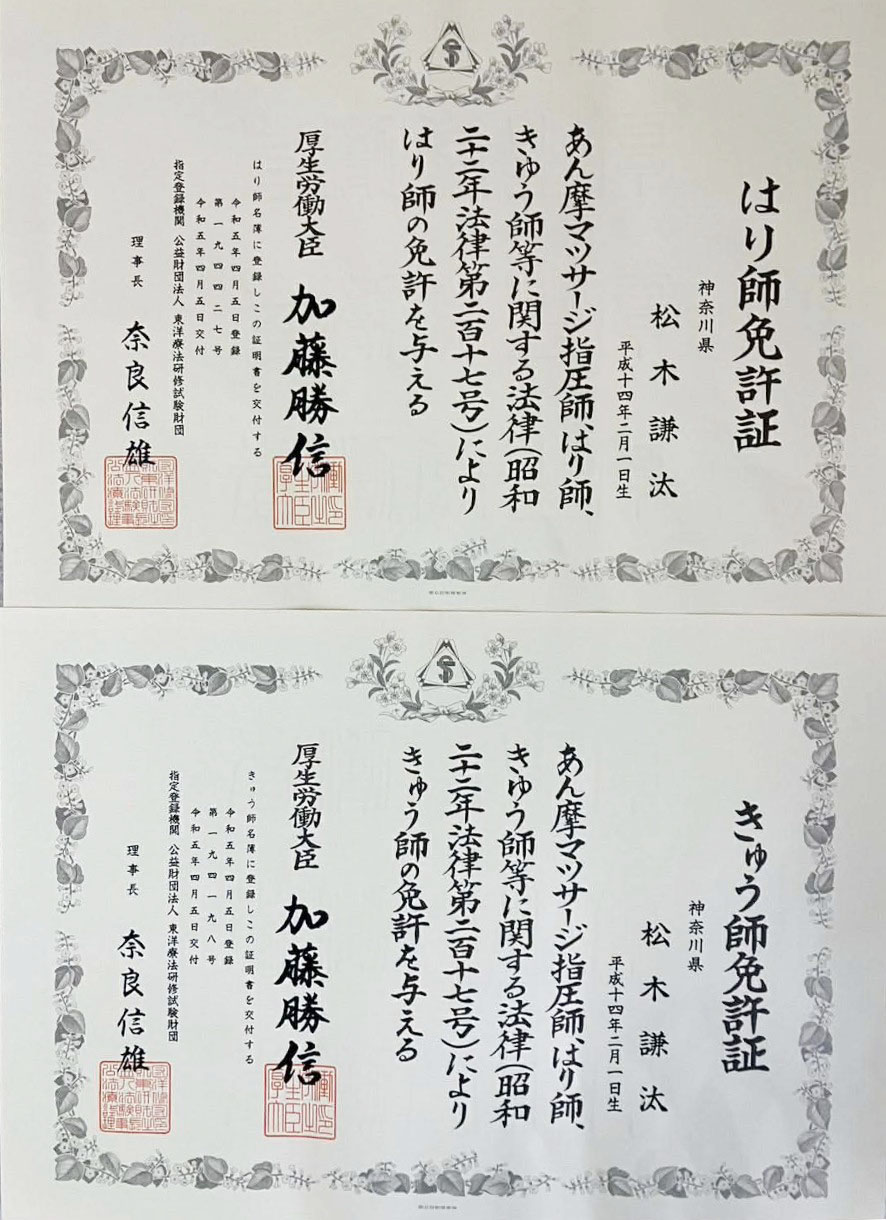 はり師免許証
神奈川県
松木謙汰
平成十四年二月一日生
あん摩マッサージ指圧師、はり師、
きゅう師等に関する法律(昭和
二十二年法律第二百十七号)により
はり師の免許を与える
厚生労働大臣 加藤勝信
はり師名簿に登録しこの証明書を交付する
令和五年四月五日登録
第一九四四二七号
令和五年四月五日交付
指定登録機関 公益財団法人 東洋療法研修試験財団
理事長 奈良信雄
きゅう師免許証
神奈川県
松木謙汰
平成十四年二月一日生
あん摩マッサージ指圧師、はり師、
きゅう師等に関する法律(昭和
二十二年法律第二百十七号)により
きゅう師の免許を与える
厚生労働大臣 加藤勝信
きゅう師名簿に登録しこの証明書を交付する
令和五年四月五日登録
第一九四一九八号
令和五年四月五日交付
指定登録機関 公益財団法人 東洋療法研修試験財団
理事長 奈良信雄